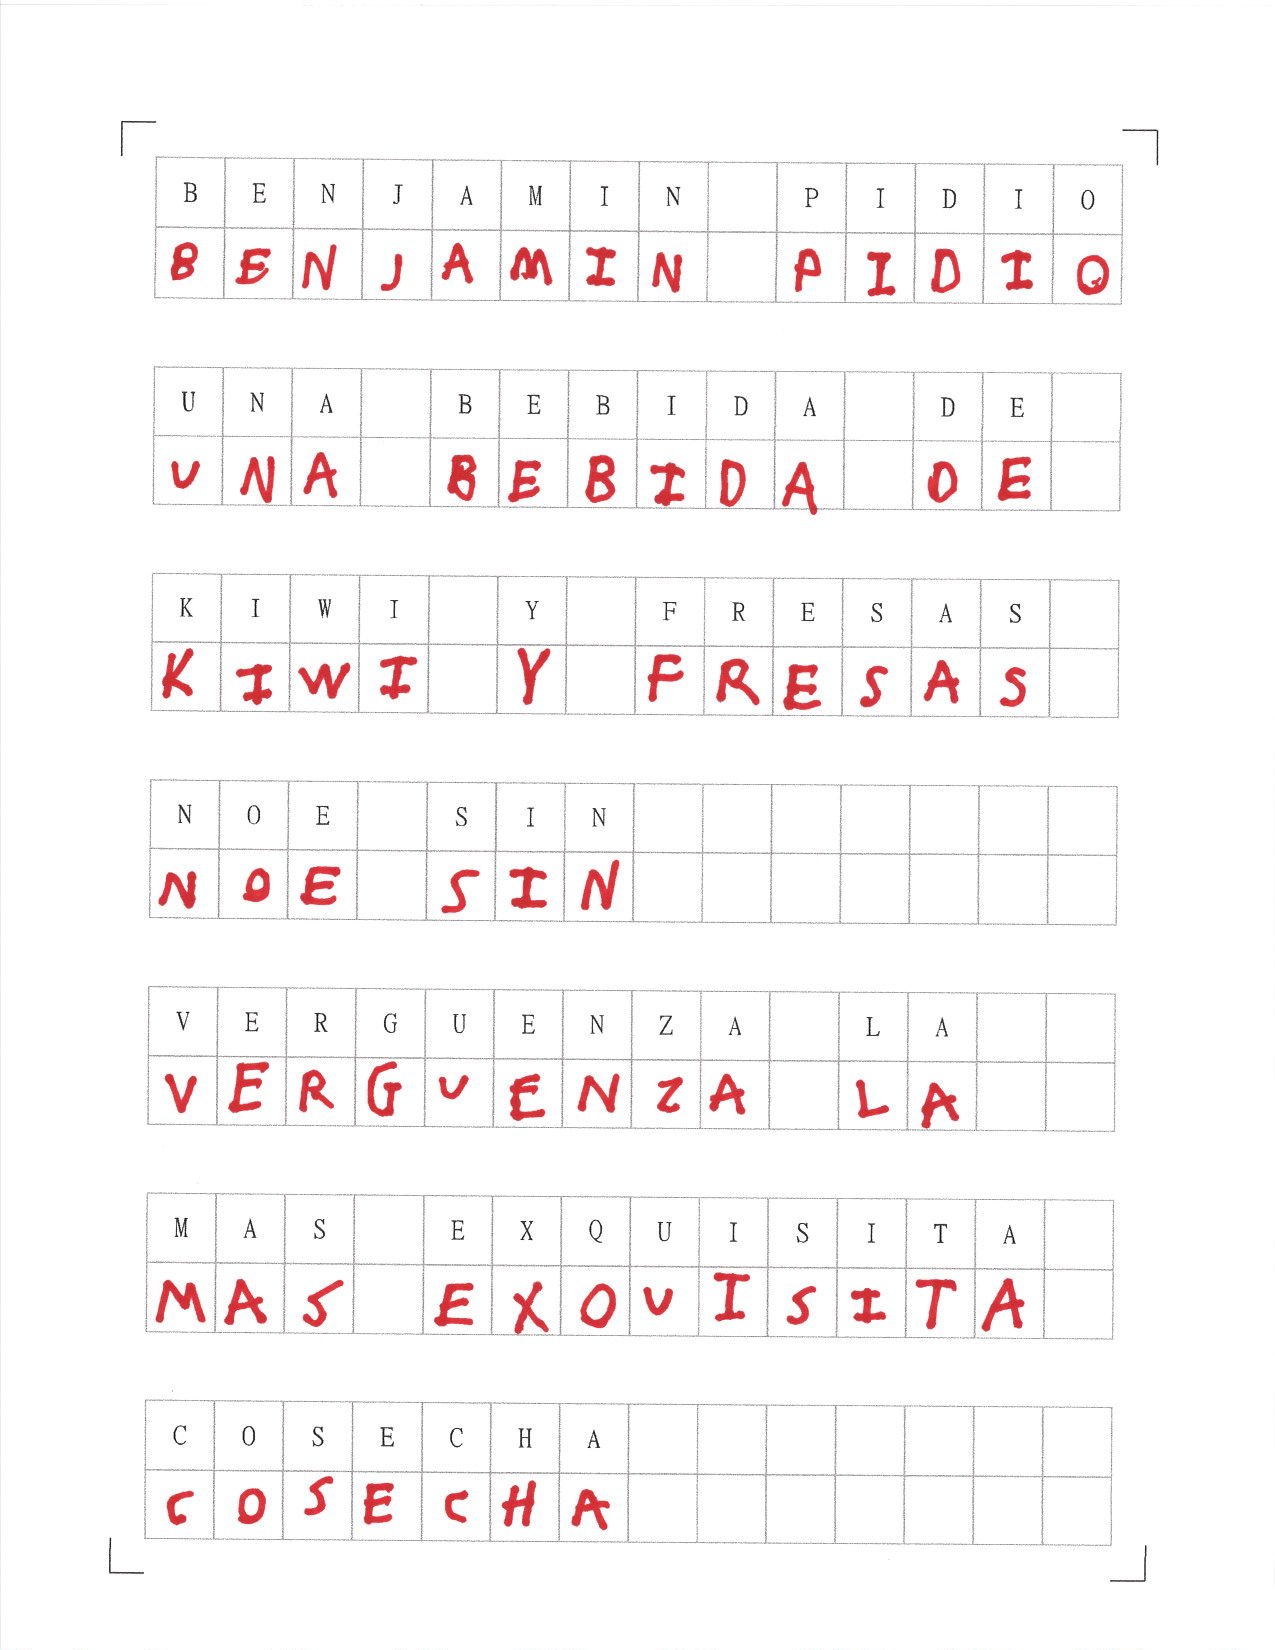 BENJAMIN PIDIO
BENJAMIN PIDIO
UNA BEBIDA DE
UNA BEBIDA DE
KIWI Y FRESAS
KIWI Y FRESAS
NOE SIN
NOE SIN
VERGUENZA LA
VERGUENZA LA
MAS EXQUISITA
MAS EXOUISITA
COSECHA
COSECHA